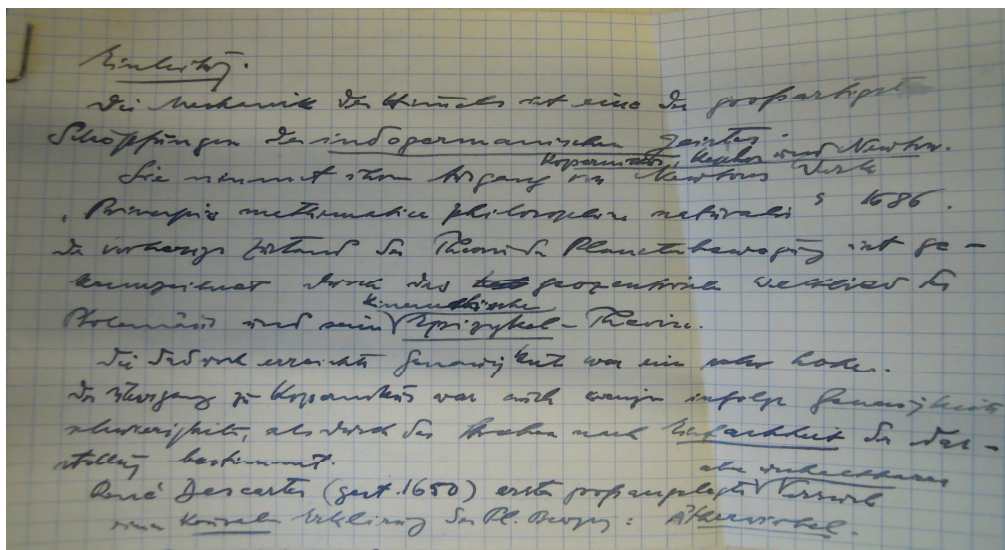 Einleitung.
Die Mechanik des Himmels ist eine der großartigsten
Schöpfungen des indogermanischen Geistes.
Kopernikus, Kepler und Newton.
Sie nimmt ihren Ausgang von Newtons Werk
"Principia mathematica philosophiae naturalis" 1686.
Der vorherige Zustand der Theorie der Planetenbewegung ist ge-
kennzeichnet durch das geozentrische Weltbild des
kinematische
Ptolemäus und seine Epizykel-Theorie.
Die dadurch erreichte Genauigkeit war eine sehr hohe.
Der Übergang zu Kopernikus war auch weniger infolge Genauigkeits-
schwierigkeiten, als durch das Streben nach Einfachheit der Dar-
stellung bestimmt.
aber unhaltbarer
René Descartes (gest. 1650) erster großangelegter Versuch
einer kausalen Erklärung der Pl. Bewegg: Ätherwirbel.